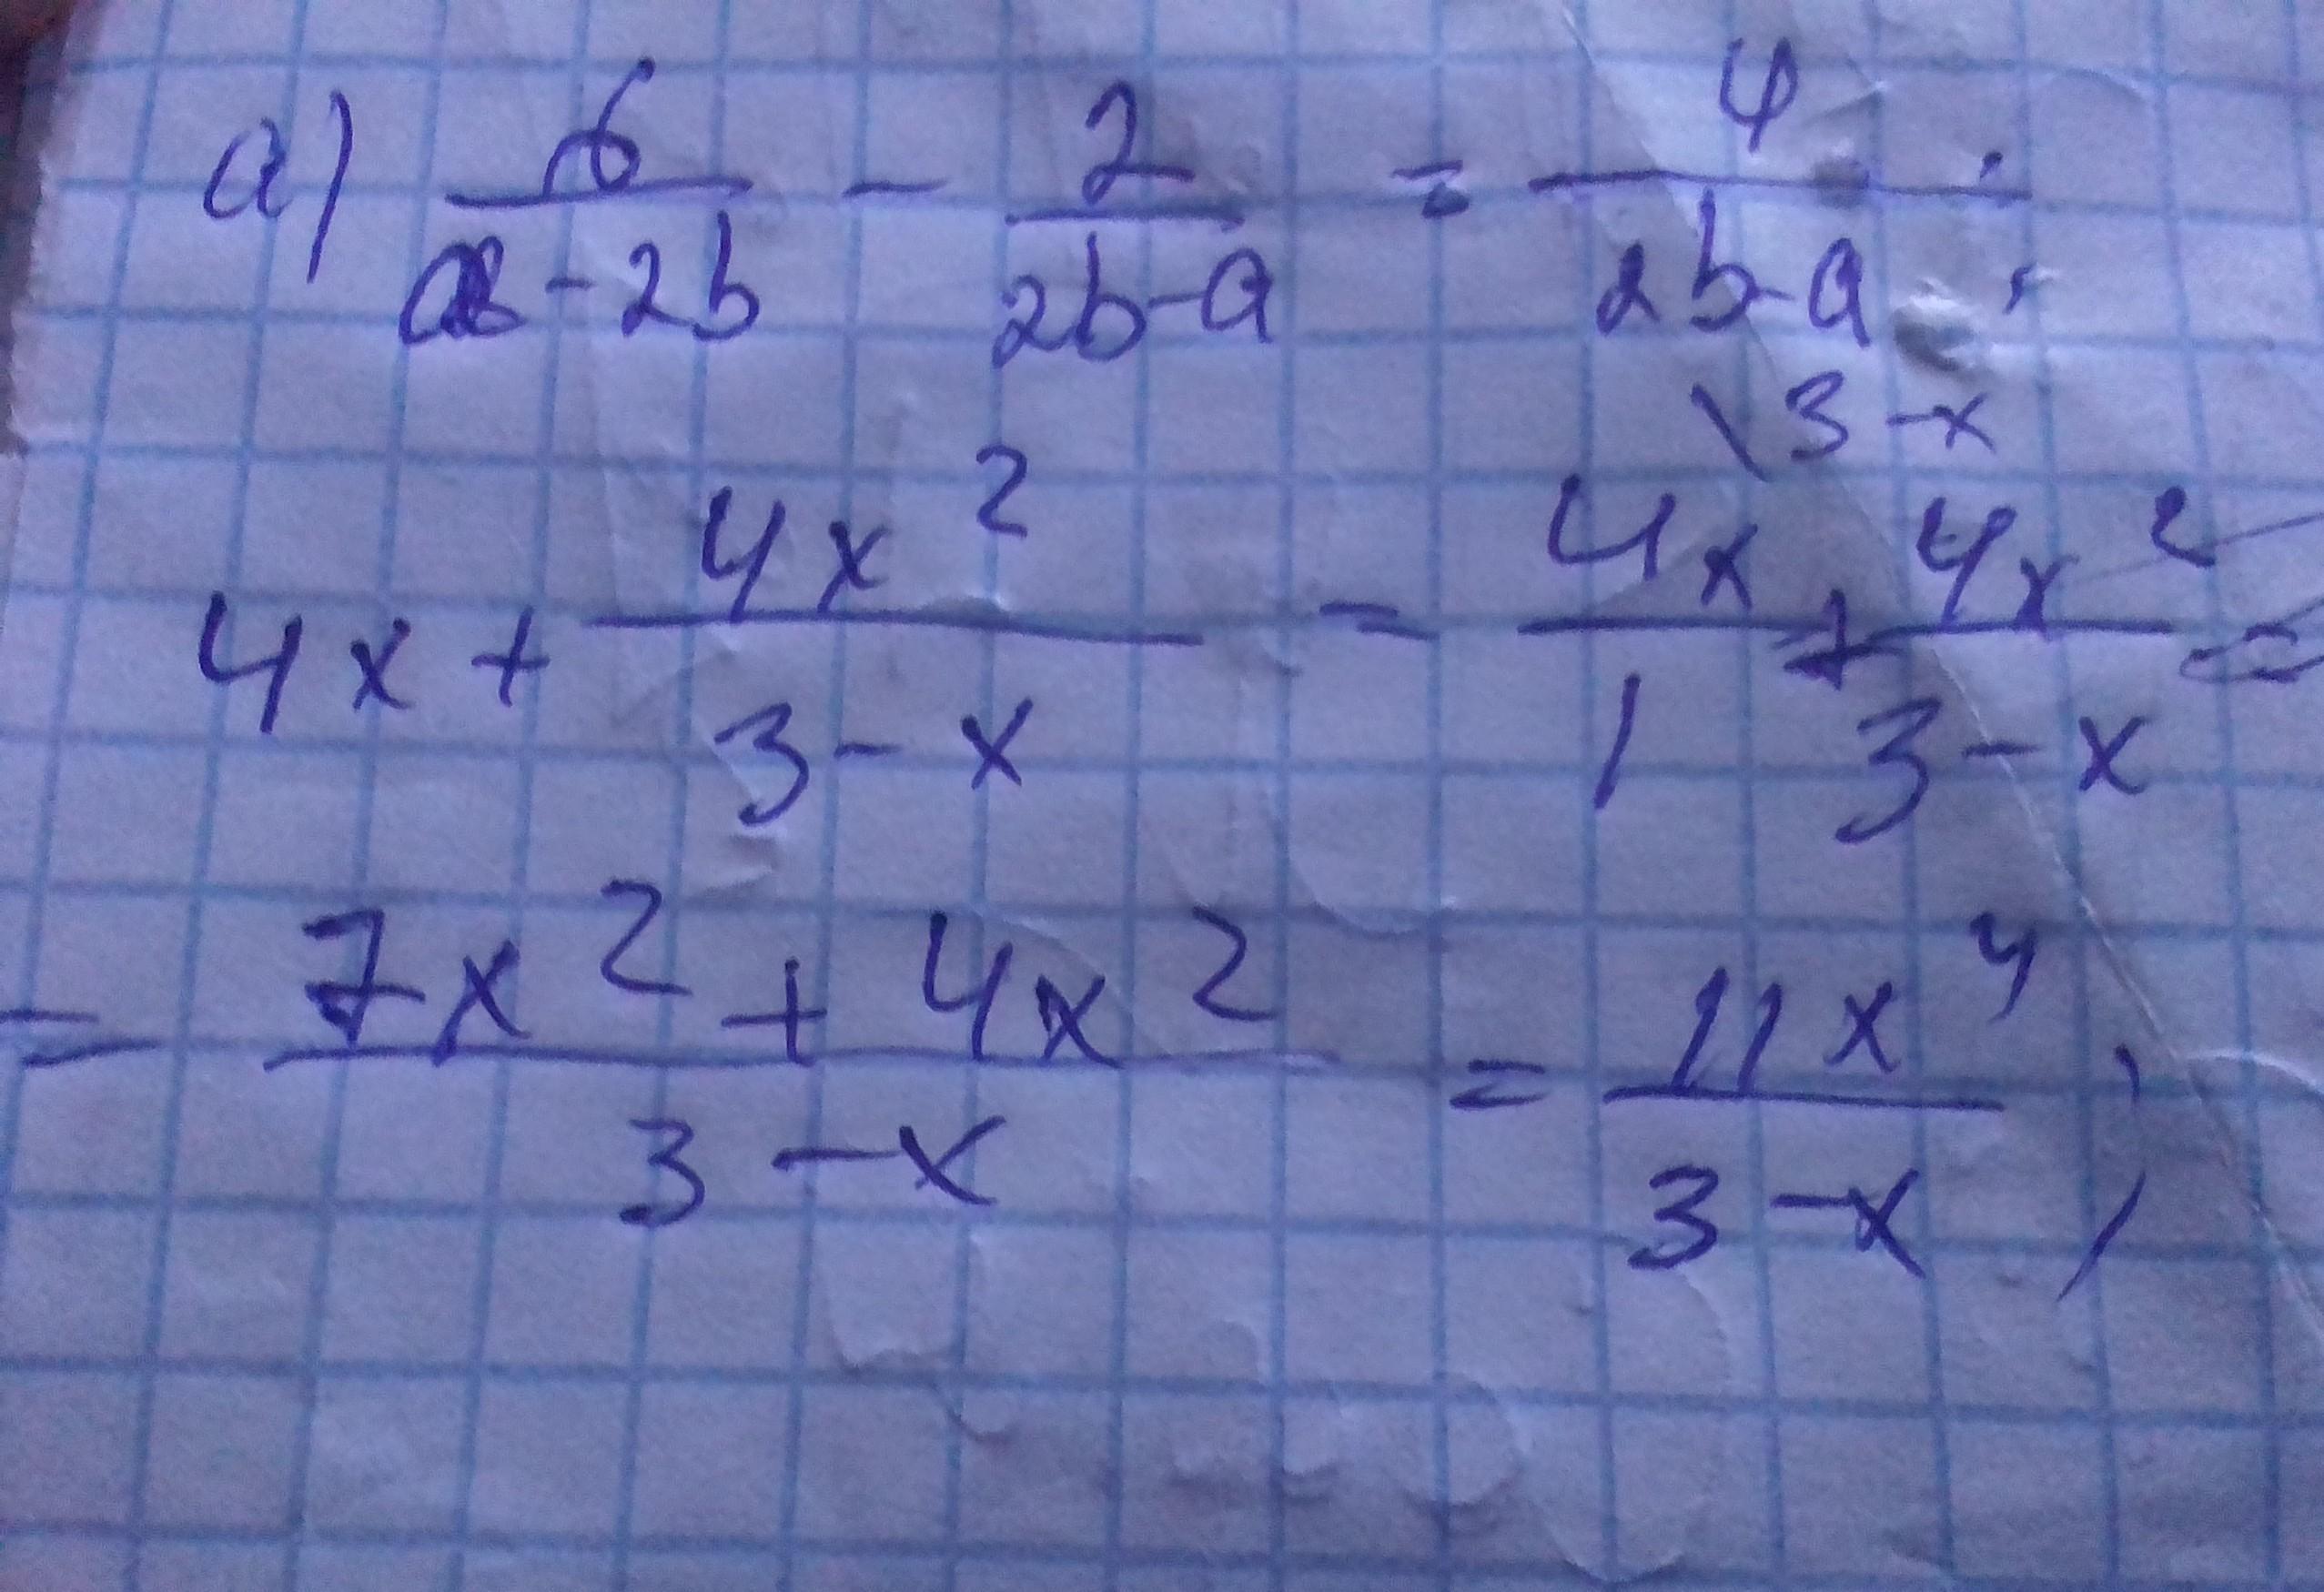 a) 6/(a-2b) - 2/(2b-a) = 4/(2b-a) ;
4x + 4x²/(3-x) = 4x\3-x/1 + 4x²/(3-x) =
= (7x² + 4x²)/(3-x) = 11x⁴/(3-x) ;